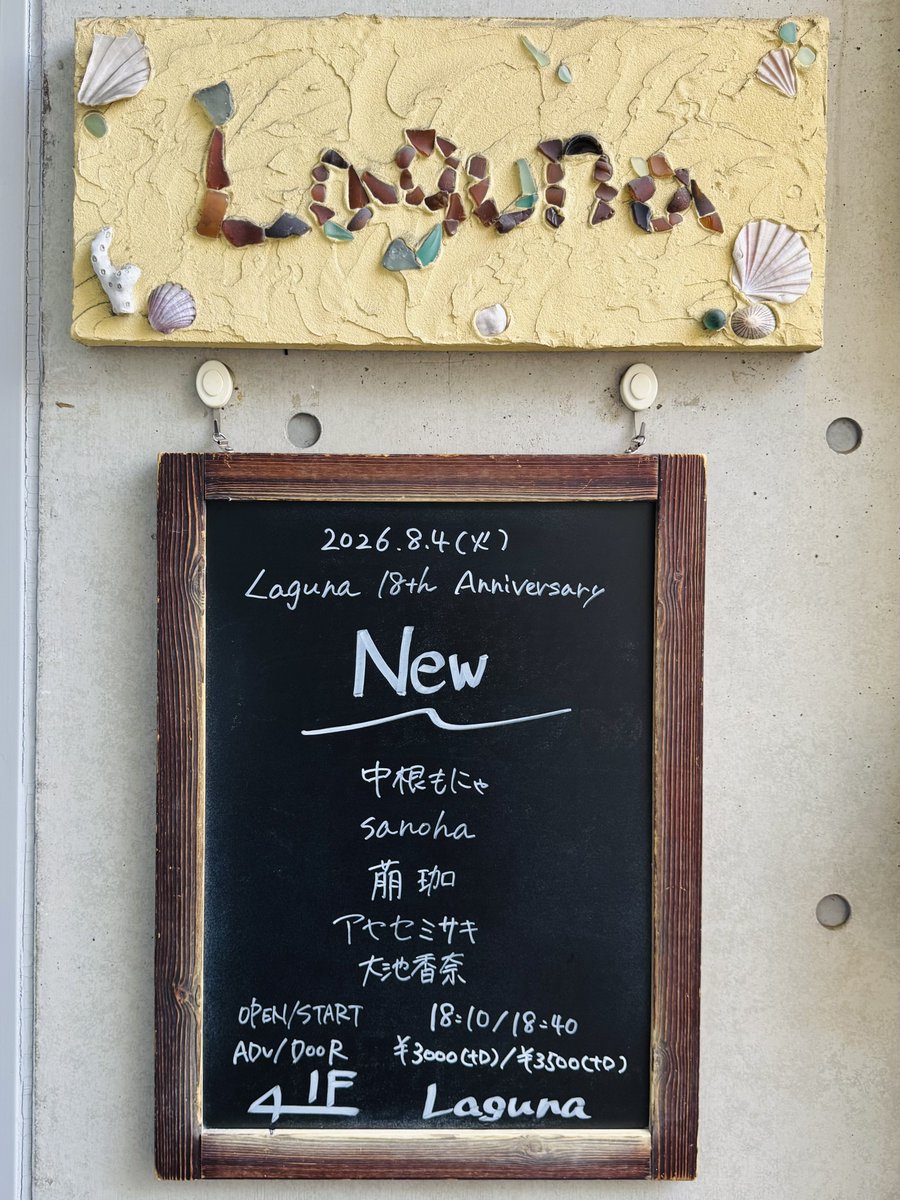 Laguna
2026.8.4(火)
Laguna 18th Anniversary
New
中根もにゃ
sanoha
萠珈
アヤセミサキ
大池香奈
OPEN/START 18:10/18:40
ADV/DOOR ¥3000(+D)/¥3500(+D)
1F Laguna